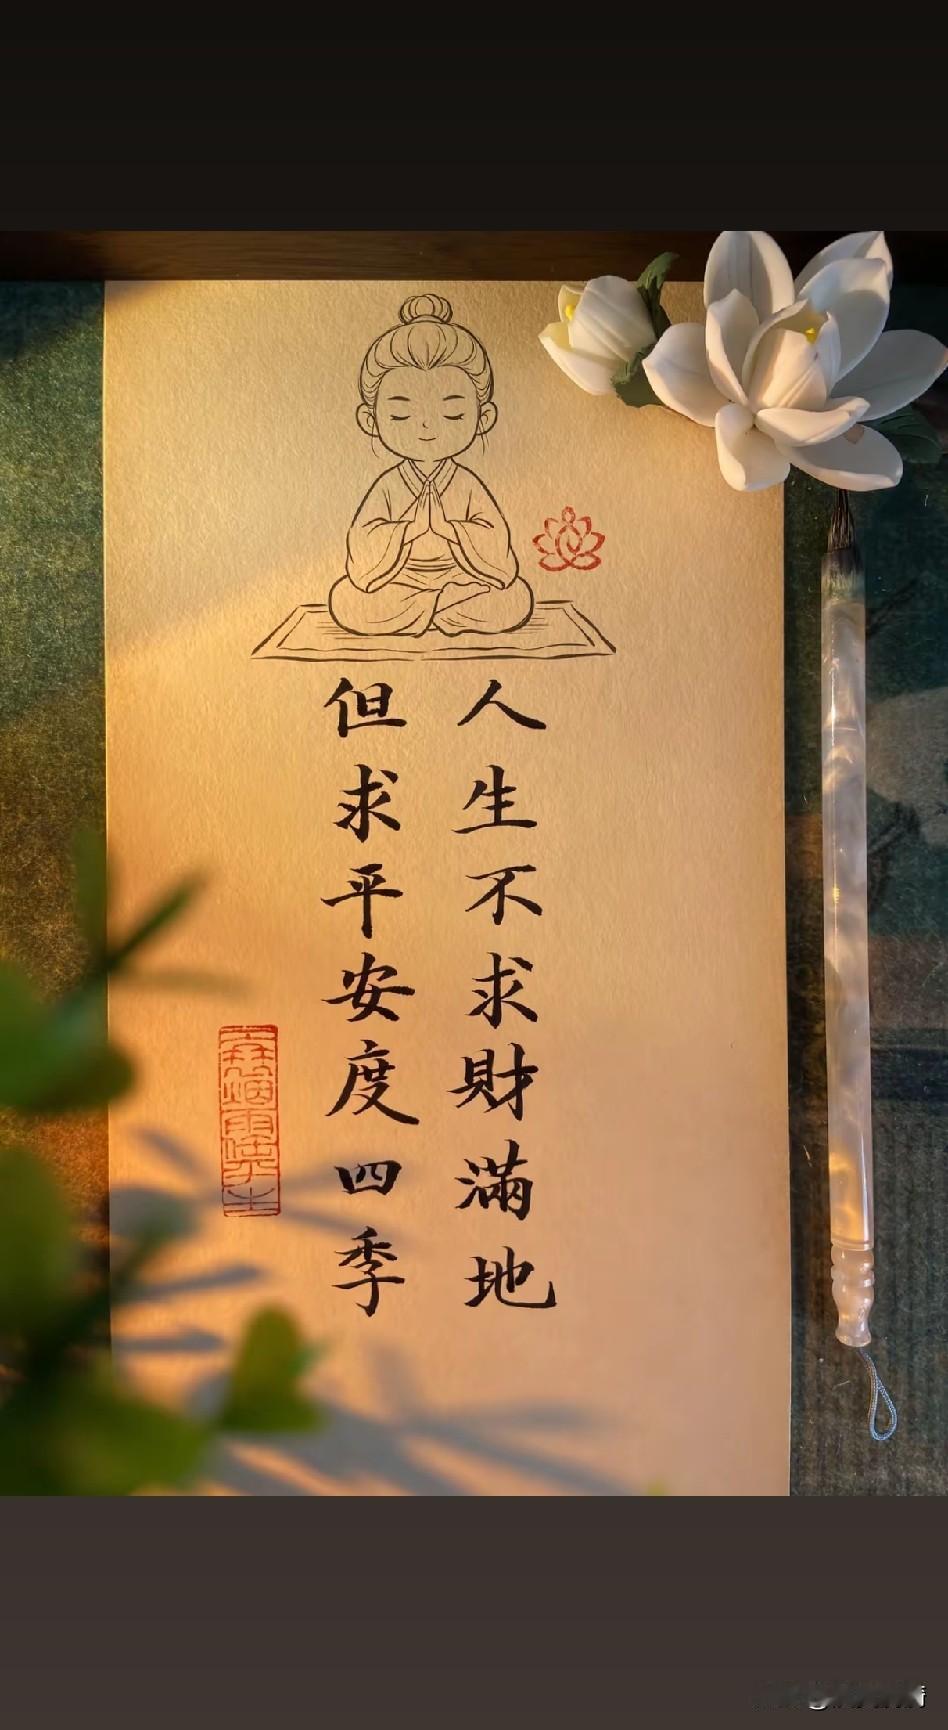 人生不求財滿地
但求平安度四季